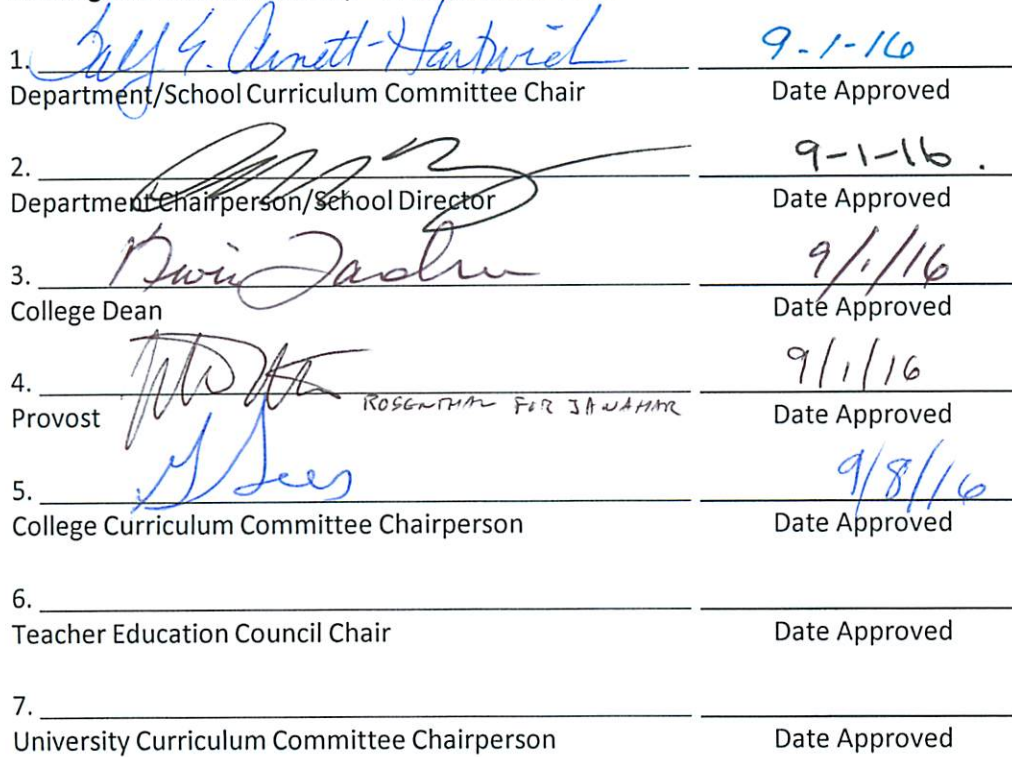 1. Sally E. Arnett-Hartwick 9-1-16
Department/School Curriculum Committee Chair Date Approved
2. 9-1-16.
Department Chairperson/School Director Date Approved
3. 9/1/16
College Dean Date Approved
4. 9/1/16
ROSENTHAL FOR JANAHAR
Provost Date Approved
5. 9/8/16
College Curriculum Committee Chairperson Date Approved
6.
Teacher Education Council Chair Date Approved
7.
University Curriculum Committee Chairperson Date Approved